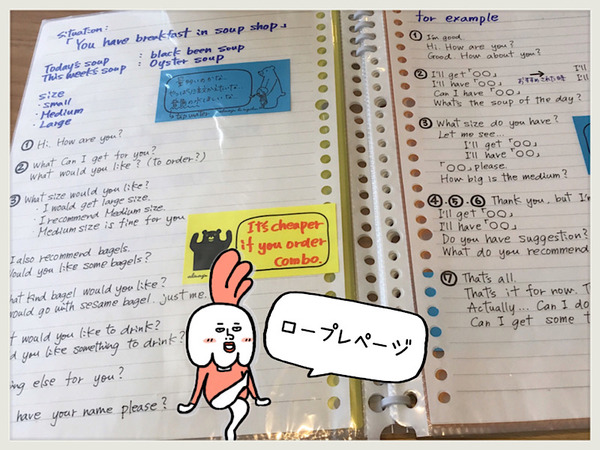 situation:
「You have breakfast in soup shop」
Today's soup : black been soup
This week's soup : Oyster soup
size
・small
・Medium
・Large
① Hi. How are you?
② What Can I get for you?
What would you like? (To order?)
③ What size would you like?
・I would get large size.
・I recommend Medium size.
Medium size is fine for you
I also recommend bagels.
Would you like some bagels?
what kind bagel would you like?
would go with sesame bagel. just me.
would you like to drink?
you like something to drink?
ing else for you?
have your name please?
It's cheaper
if you order
combo.
ロープレページ
for example
① I'm good.
Hi. How are you?
Good. How about you?
② I'll get「〇〇」
I'll have「〇〇」
Can I have「〇〇」
What's the soup of the day?
おすすめされた時
I'll
I'll
③ What size do you have?
Let me see...
I'll get「〇〇」
I'll have「〇〇」
「〇〇」please.
How big is the medium?
④.⑤.⑥ Thank you, but I'm
I'll get「〇〇」
I'll have「〇〇」
Do you have suggestion?
What do you recommend
⑦ That's all.
That's it for now. T
Actually... Can I do
Can I get some t